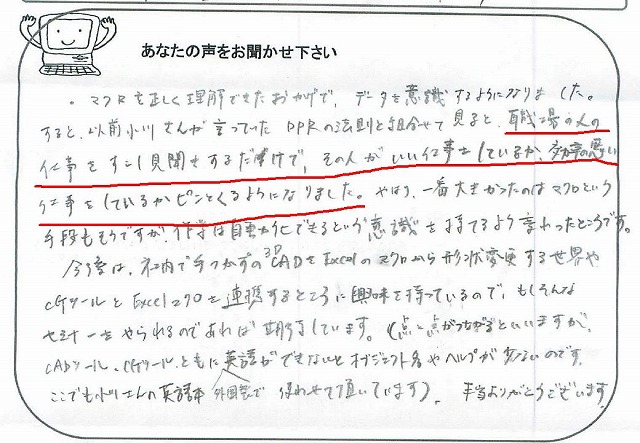 あなたの声をお聞かせ下さい
・マクロを正しく理解できたおかげで、データを意識するようになりました。
すると、以前小川さんが言っていたDPRの法則と組合せて見ると、職場の人の
仕事をすこし見聞きするだけで、その人がいい仕事をしているか、効率の悪い
仕事をしているかピンとくるようになりました。やはり、一番大きかったのはマクロという
手段もそうですが、作業は自動化できるという意識を持てるよう変わったところです。
今後は、社内で手つかずの3D CADをExcelのマクロから形状変更する世界や
CGツールとExcelマクロを連携するところに興味を持っているので、もしそんな
セミナーをやられるのであれば期待しています。(点と点がつながるといいますが、
CADツール、CGツールともに英語ができないとオブジェクト名やヘルプが少ないのです。
ここでも小川さんの英語本 外国語で 使わせて頂いています)。 本当ありがとうございます。